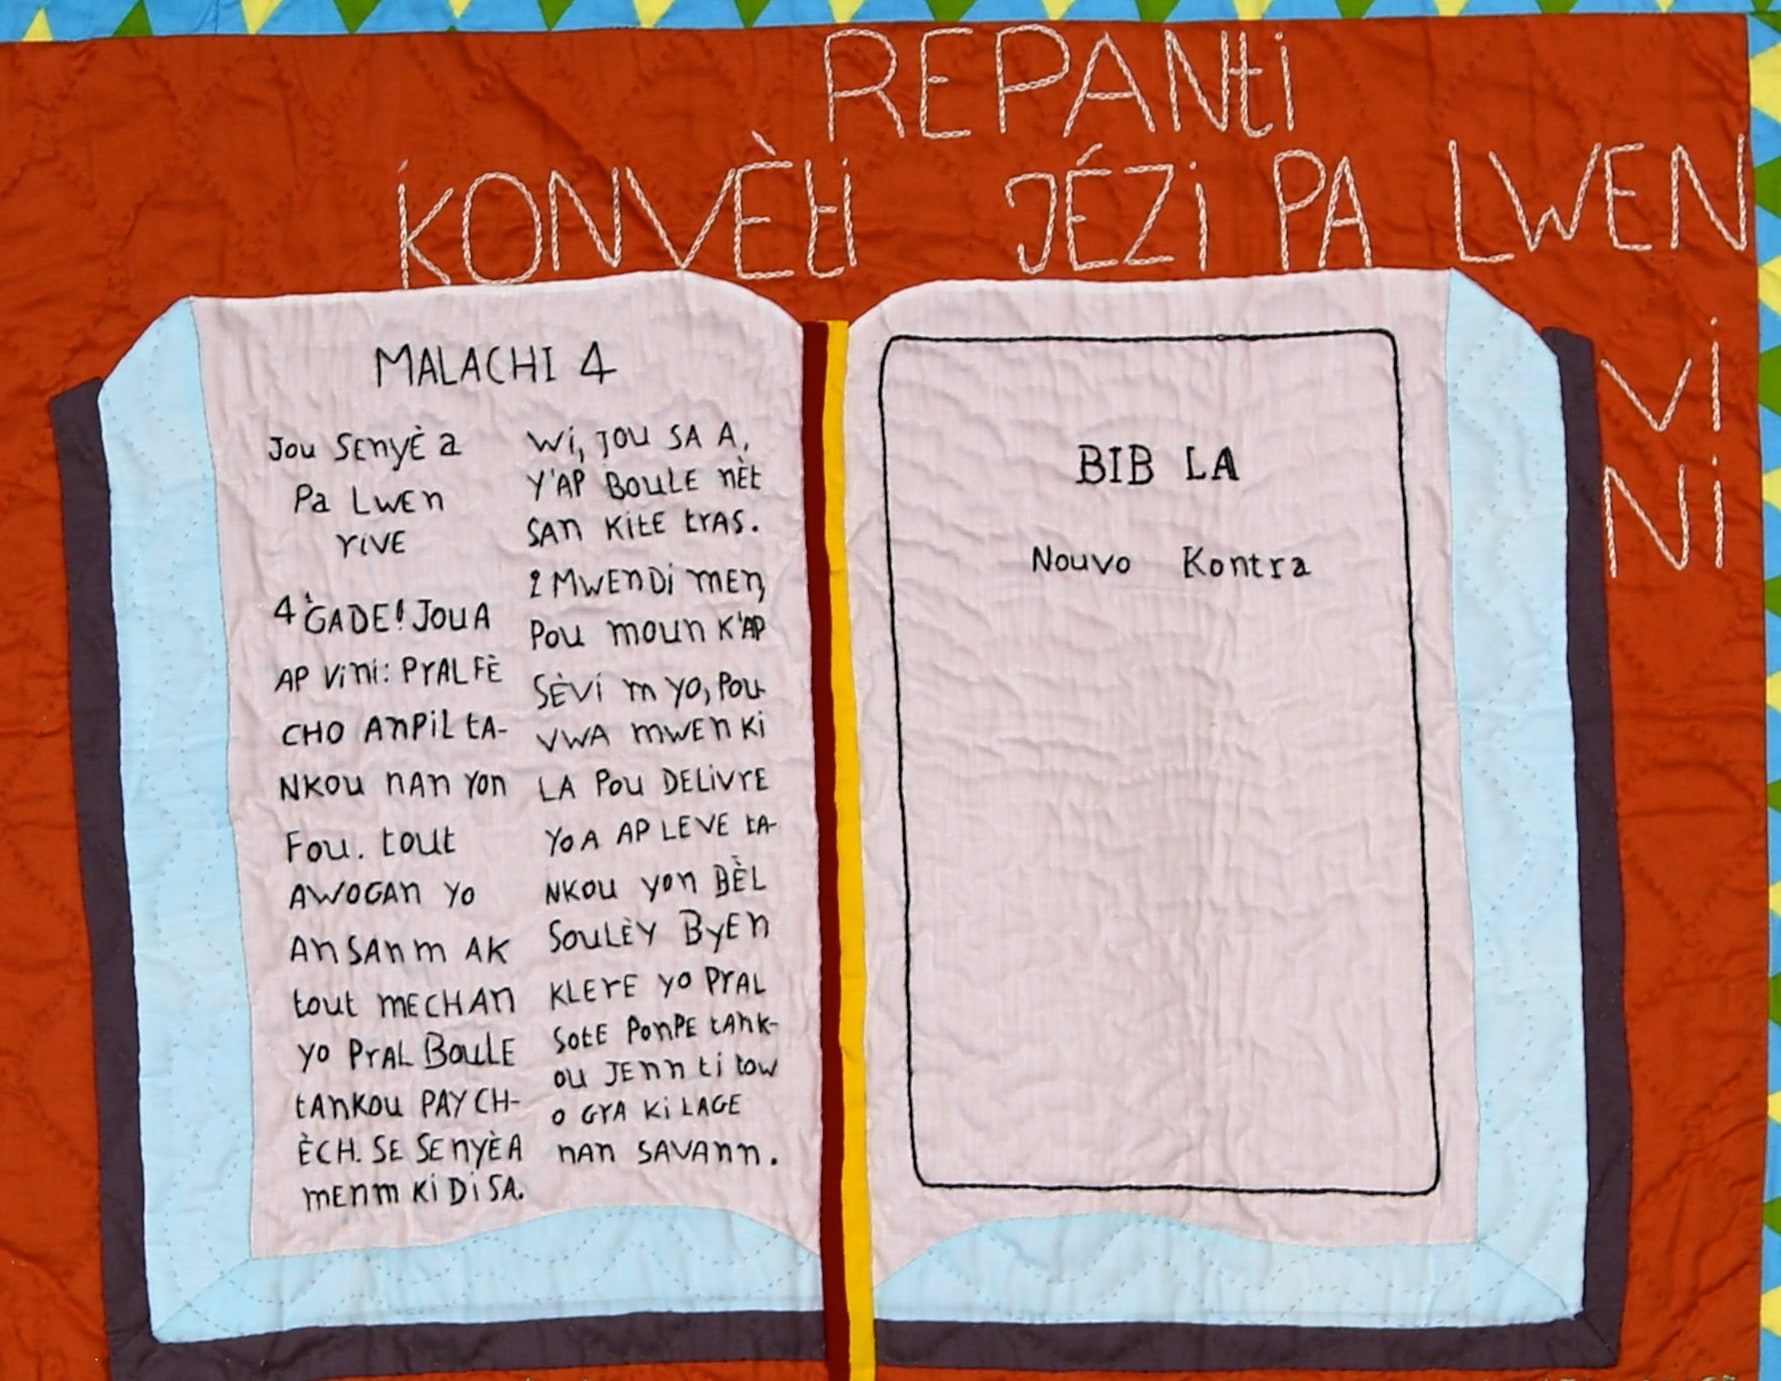 REPANti
KONVÈti JÉZi PA LWEN
Vi
Ni
MALACHI 4
Jou SEnyÈ a
Pa LwEn
rIVE
4 'GADE! JOU A
AP Vini: PrAL FÈ
CHO AnPiL tA-
NKOU nAn Yon
FOU. tout
AWOGAN YO
AnSAnm AK
tout mECHAn
YO PrAL BOULE
tAnKOU PAY CH-
ÈCH. SE SEnyÈ A
mEnm Ki Di SA.
Wi, JOU SA A,
Y'AP BOULE nÈt
SAn KitE trAS.
2 MWEn Di mEn,
POU moun K'AP
SÈVi m YO, POU
VWA mWEn Ki
LA POU DELiVrE
YO A AP LEVE tA-
NKOU yon BÈL
SOULÈY ByEn
KLErE YO PrAL
SotE PonPE tAnK-
OU JEnn ti tow
o GrA Ki LAGE
nAn SAVAnn.
BIB LA
Nouvo Kontra